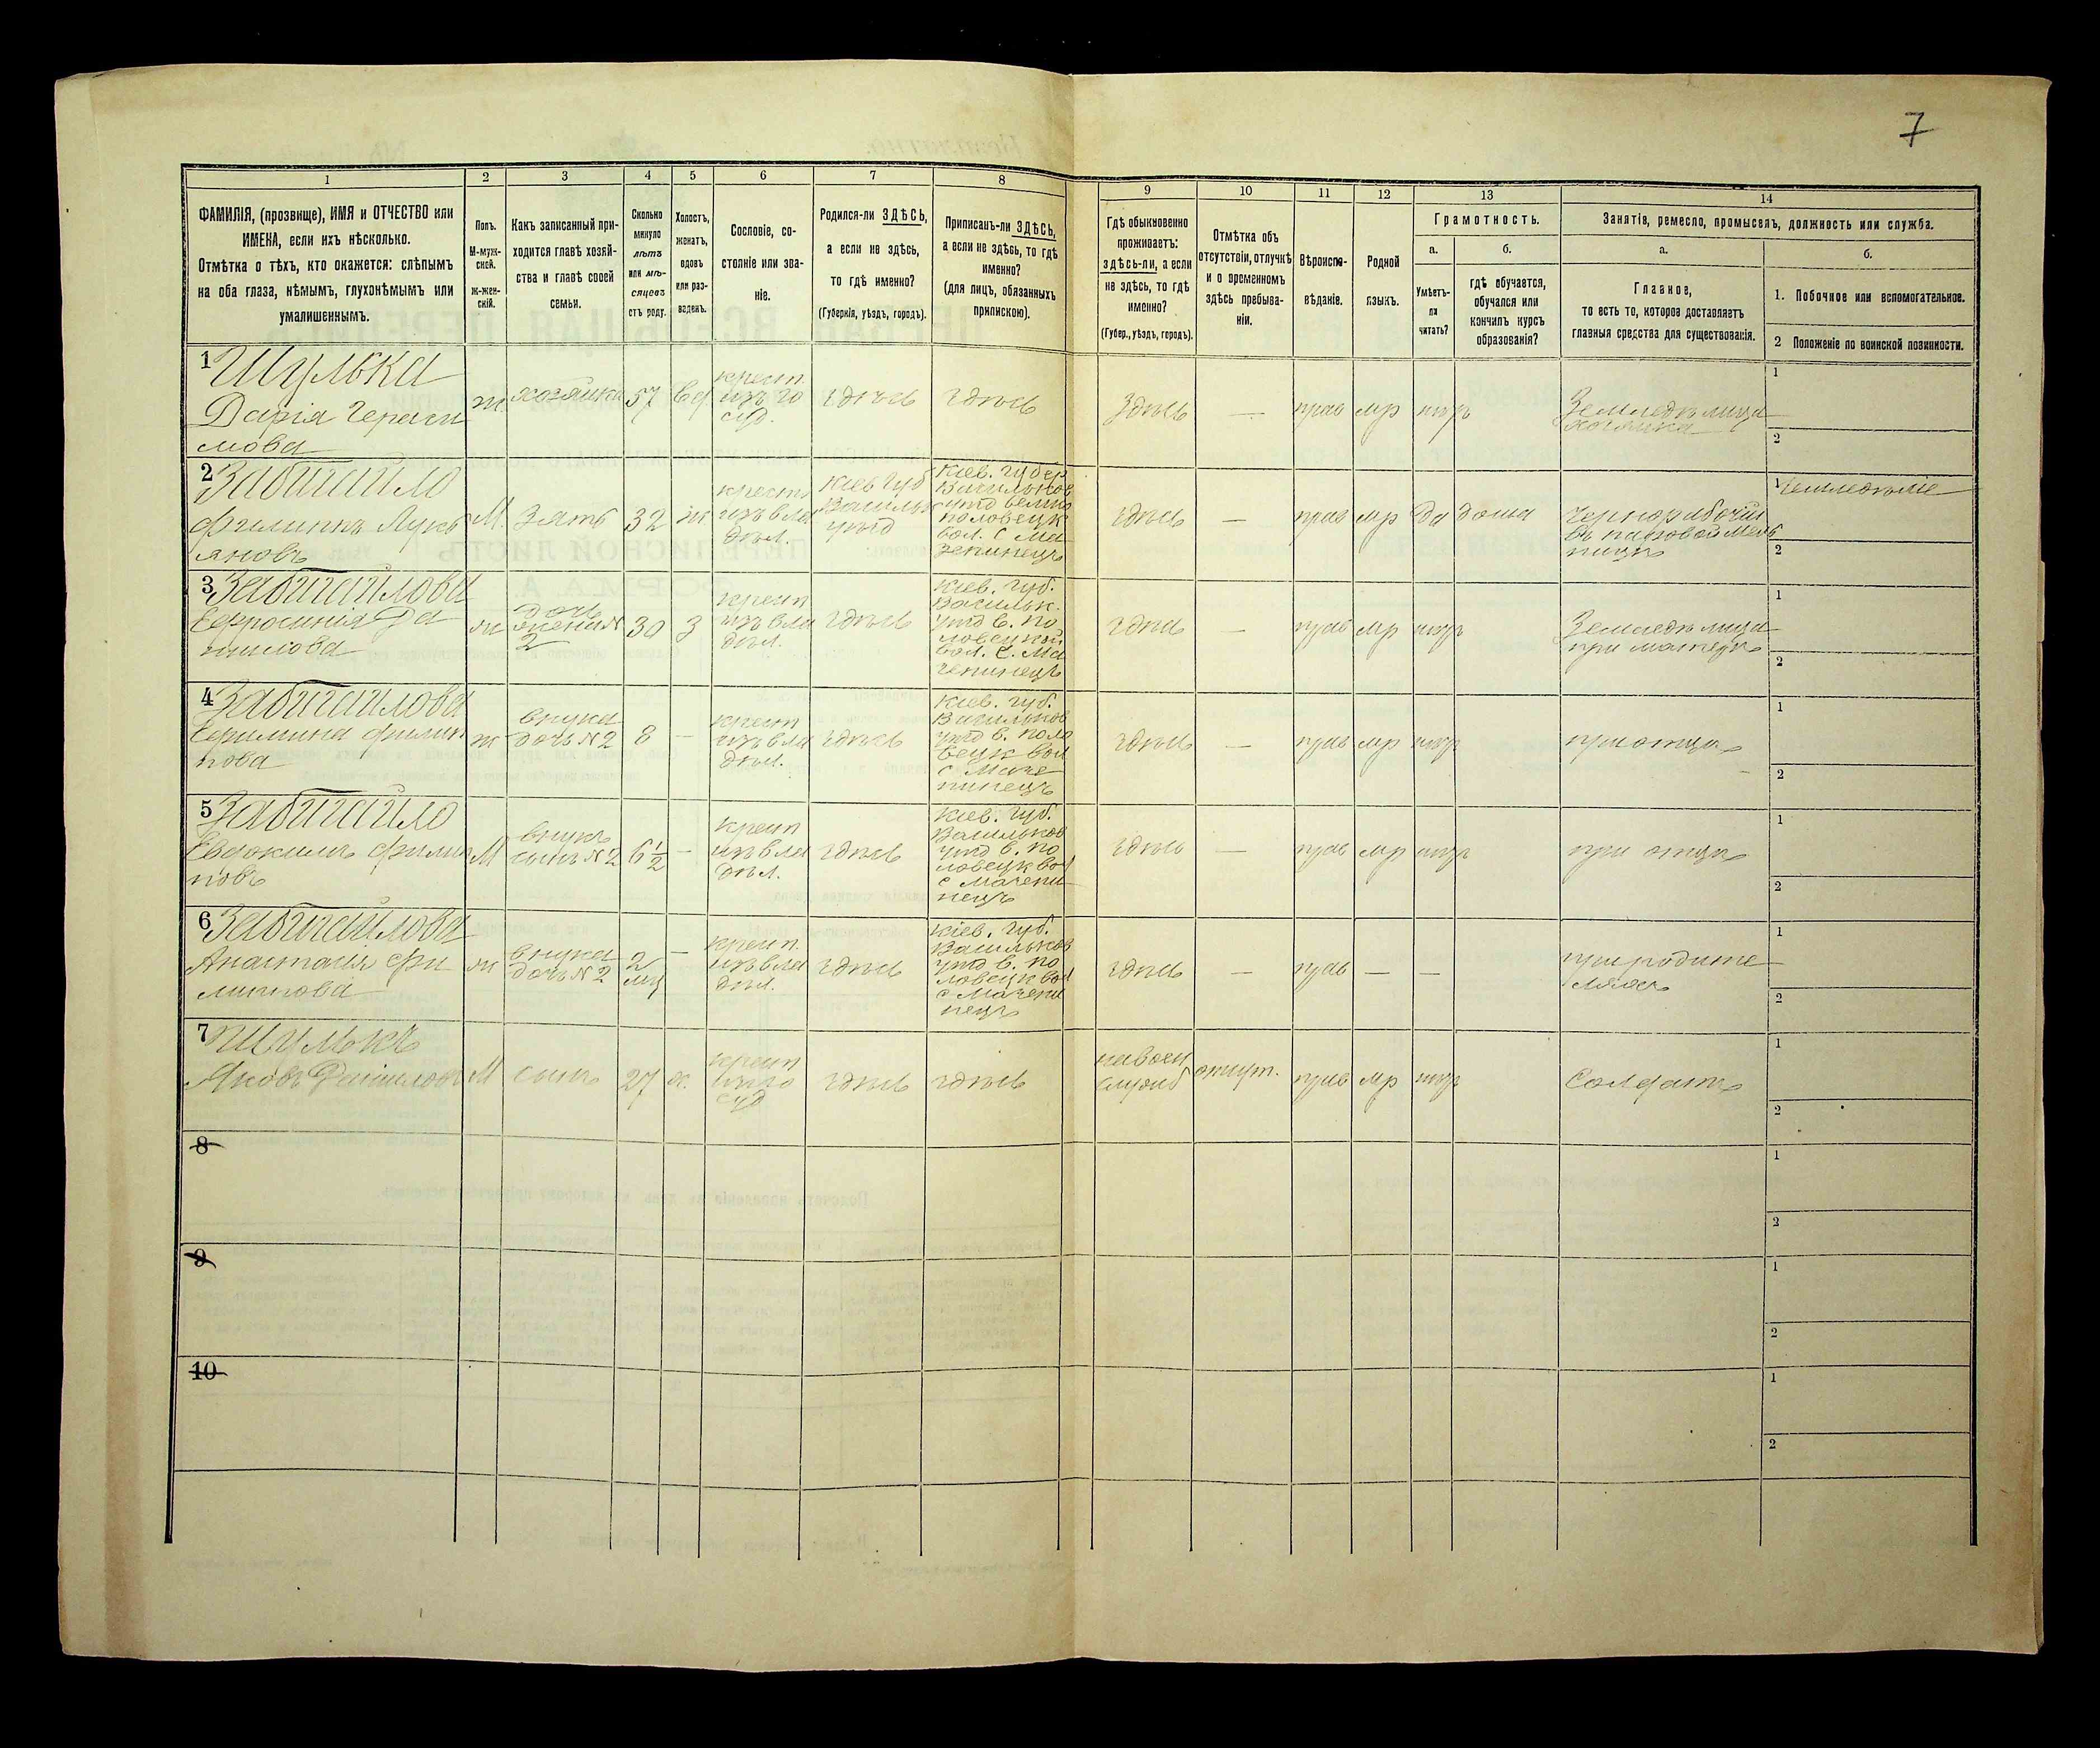 7
1 2 3 4 5 6 7 8 9 10 11 12 13 14
ФАМИЛІЯ, (прозвище), ИМЯ и ОТЧЕСТВО или
ИМЕНА, если ихъ нѣсколько.
Отмѣтка о тѣхъ, кто окажется: слѣпымъ
на оба глаза, нѣмымъ, глухонѣмымъ или
умалишеннымъ.
Полъ.
М-муж-
ской.
Ж-жен-
скій.
Какъ записанный при-
ходится главѣ хозяй-
ства и главѣ своей
семьи.
Сколько
минуло
лѣтъ
или мѣ-
сяцевъ
отъ роду.
Холостъ,
женатъ,
вдовъ
или раз-
веденъ.
Сословіе, со-
стояніе или зва-
ніе.
Родился-ли ЗДѢСЬ,
а если не здѣсь,
то гдѣ именно?
(Губернія, уѣздъ, городъ).
Приписанъ-ли ЗДѢСЬ,
а если не здѣсь, то гдѣ
именно?
(для лицъ, обязанныхъ
припискою).
Гдѣ обыкновенно
проживаетъ:
здѣсь-ли, а если
не здѣсь, то гдѣ
именно?
(Губер., уѣздъ, городъ).
Отмѣтка объ
отсутствіи, отлучкѣ
и о временномъ
здѣсь пребыва-
ніи.
Вѣроиспо-
вѣданіе.
Родной
языкъ.
Грамотность.
а.
Умѣетъ-
ли
читать?
б.
гдѣ обучается,
обучался или
кончилъ курсъ
образованія?
Занятія, ремесло, промыселъ, должность или служба.
а.
Главное,
то есть то, которое доставляетъ
главныя средства для существованія.
б.
1. Побочное или вспомогательное.
2 Положеніе по воинской повинности.
1 Шулька
Дарія Гераси
мова
ж.
хозяйка
57
вд
крест.
изъ го
суд.
здѣсь
здѣсь
Здѣсь
—
прав
мр
нѣтъ
Земледѣлица
хозяйка
1
2
2 Забигайло
Филиппъ Лукь
яновъ
М.
Зять
32
ж
крест
изъ вла
дѣл.
Кіев Губ
Васильк
уѣзд
Кіев. губер
Васильков
уѣзд велико
половецк
вол. с Ма
зепинецъ
здѣсь
—
прав
мр
да
дома
Чернорабочій
въ паровой мель
ницѣ
1 Земледѣліе
2
3 Забигайлова
Ефросинія Да
нилова
ж
дочь
жена №
2
30
З
крест
изъ вла
дѣл.
здѣсь
Кіев. губ.
Васильк.
уѣзд в. по
ловецкой
вол. с. Ма
зепинецъ
здѣсь
—
прав
мр
нѣтъ
Земледѣлица
при матери
1
2
4 Забигайлова
Филип
пова
ж
внука
дочь №2
8
—
крест
изъ вла
дѣл.
здѣсь
Кіев. губ.
Васильков
уѣзд в. поло
вецк вол
с Мазе
пинецъ
здѣсь
—
прав
мр
нѣтъ
при отцѣ
1
2
5 Забигайло
Евдокимъ Филип
повъ
М
внукъ
сынъ №2
6 1/2
—
крест
изъ вла
дѣл.
здѣсь
Кіев. губ.
Васильков
уѣзд в. по
ловецк вол
с Мазепи
нецъ
здѣсь
—
прав
мр
нѣтъ
при отцѣ
1
2
6 Забигайлова
Анастасія Фи
липпова
ж
внука
дочь №2
2
мц
—
крест.
изъ вла
дѣл.
здѣсь
Кіев. губ.
Васильков
уѣзд в. по
ловецк вол
с Мазепи
нецъ
здѣсь
—
прав
—
—
при родите
ляхъ
1
2
7 Шулька
Яковъ Даниловъ
М
сынъ
27
х.
крест
изъ го
суд
здѣсь
здѣсь
на воен
службѣ
отсут.
прав
мр
нѣтъ
Солдатъ
1
2
8
1
2
9
1
2
10
1
2